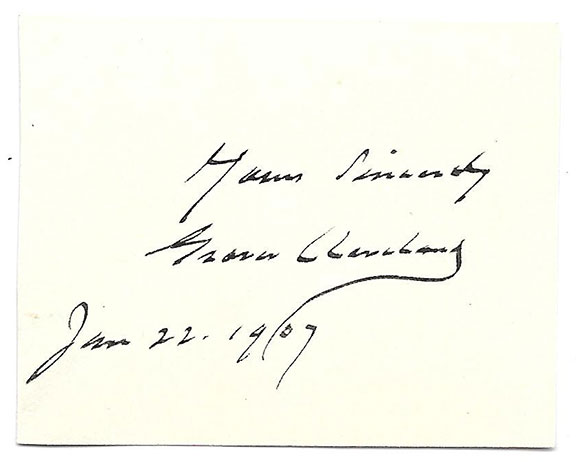 Yours Sincerely
Grover Cleveland
Jan 22. 1907